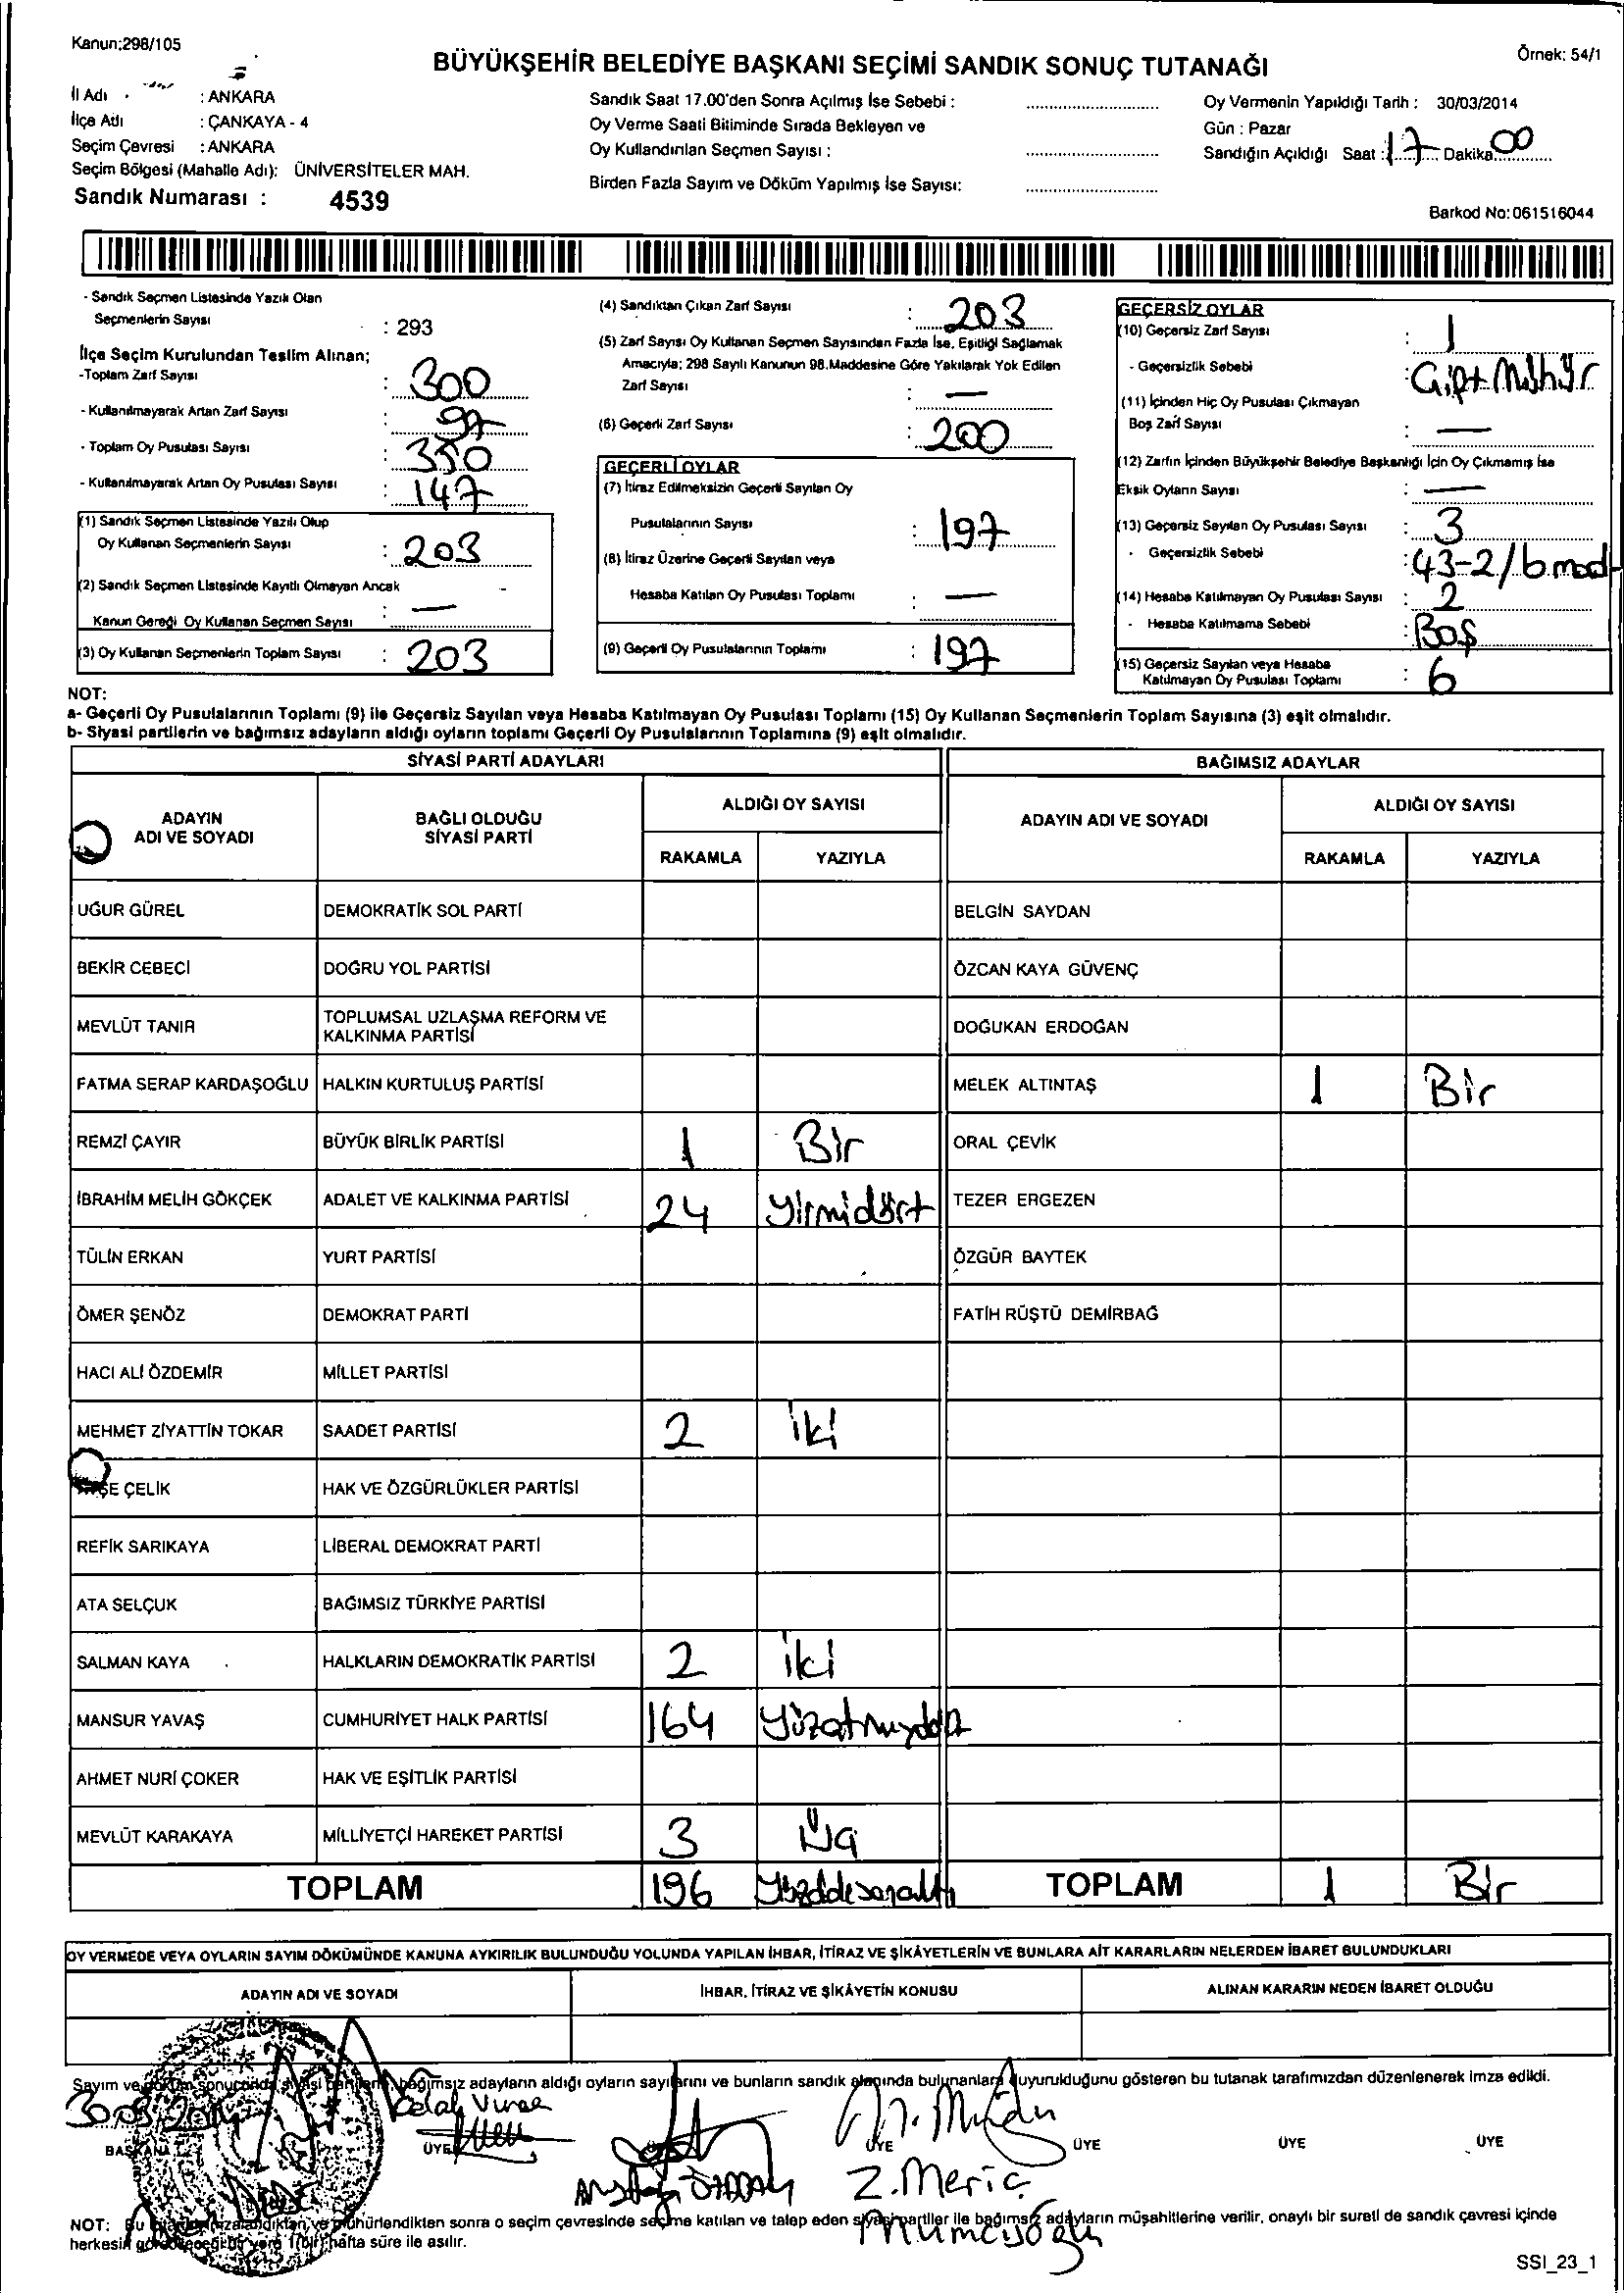 Kanun;298/105
Örnek: 54/1
BÜYÜKŞEHİR BELEDİYE BAŞKANI SEÇİMİ SANDIK SONUÇ TUTANAĞI
İl Adı : ANKARA
İlçe Adı : ÇANKAYA - 4
Seçim Çevresi : ANKARA
Seçim Bölgesi (Mahalle Adı): ÜNİVERSİTELER MAH.
Sandık Numarası : 4539
Sandık Saat 17.00'den Sonra Açılmış İse Sebebi :
Oy Verme Saati Bitiminde Sırada Bekleyen ve
Oy Kullandırılan Seçmen Sayısı :
Birden Fazla Sayım ve Döküm Yapılmış İse Sayısı:
Oy Vermenin Yapıldığı Tarih : 30/03/2014
Gün : Pazar
Sandığın Açıldığı Saat : 17 Dakika 00
Barkod No: 061516044
- Sandık Seçmen Listesinde Yazılı Olan
Seçmenlerin Sayısı : 293
İlçe Seçim Kurulundan Teslim Alınan;
-Toplam Zarf Sayısı : 300
- Kullanılmayarak Artan Zarf Sayısı : 97
- Toplam Oy Pusulası Sayısı : 350
- Kullanılmayarak Artan Oy Pusulası Sayısı : 147
(1) Sandık Seçmen Listesinde Yazılı Olup
Oy Kullanan Seçmenlerin Sayısı : 203
(2) Sandık Seçmen Listesinde Kayıtlı Olmayan Ancak
Kanun Gereği Oy Kullanan Seçmen Sayısı : —
(3) Oy Kullanan Seçmenlerin Toplam Sayısı : 203
(4) Sandıktan Çıkan Zarf Sayısı : 203
(5) Zarf Sayısı Oy Kullanan Seçmen Sayısından Fazla İse, Eşitliği Sağlamak
Amacıyla; 298 Sayılı Kanunun 98.Maddesine Göre Yakılarak Yok Edilen
Zarf Sayısı : —
(6) Geçerli Zarf Sayısı : 200
GEÇERLİ OYLAR
(7) İtiraz Edilmeksizin Geçerli Sayılan Oy
Pusulalarının Sayısı : 197
(8) İtiraz Üzerine Geçerli Sayılan veya
Hesaba Katılan Oy Pusulası Toplamı : —
(9) Geçerli Oy Pusulalarının Toplamı : 197
GEÇERSİZ OYLAR
(10) Geçersiz Zarf Sayısı : 1
- Geçersizlik Sebebi : Çift Mühür
(11) İçinden Hiç Oy Pusulası Çıkmayan
Boş Zarf Sayısı : —
(12) Zarfın İçinden Büyükşehir Belediye Başkanlığı İçin Oy Çıkmamış İse
Eksik Oyların Sayısı : —
(13) Geçersiz Sayılan Oy Pusulası Sayısı : 3
- Geçersizlik Sebebi : 43-2/b mad
(14) Hesaba Katılmayan Oy Pusulası Sayısı : 2
- Hesaba Katılmama Sebebi : Boş
(15) Geçersiz Sayılan veya Hesaba
Katılmayan Oy Pusulası Toplamı : 6
NOT:
a- Geçerli Oy Pusulalarının Toplamı (9) ile Geçersiz Sayılan veya Hesaba Katılmayan Oy Pusulası Toplamı (15) Oy Kullanan Seçmenlerin Toplam Sayısına (3) eşit olmalıdır.
b- Siyasi partilerin ve bağımsız adayların aldığı oyların toplamı Geçerli Oy Pusulalarının Toplamına (9) eşit olmalıdır.
SİYASİ PARTİ ADAYLARI BAĞIMSIZ ADAYLAR
ADAYIN ADI VE SOYADI BAĞLI OLDUĞU SİYASİ PARTİ ALDIĞI OY SAYISI ADAYIN ADI VE SOYADI ALDIĞI OY SAYISI
RAKAMLA YAZIYLA RAKAMLA YAZIYLA
UĞUR GÜREL DEMOKRATİK SOL PARTİ BELGİN SAYDAN
BEKİR CEBECİ DOĞRU YOL PARTİSİ ÖZCAN KAYA GÜVENÇ
MEVLÜT TANIR TOPLUMSAL UZLAŞMA REFORM VE KALKINMA PARTİSİ DOĞUKAN ERDOĞAN
FATMA SERAP KARDAŞOĞLU HALKIN KURTULUŞ PARTİSİ MELEK ALTINTAŞ 1 Bir
REMZİ ÇAYIR BÜYÜK BİRLİK PARTİSİ 1 Bir ORAL ÇEVİK
İBRAHİM MELİH GÖKÇEK ADALET VE KALKINMA PARTİSİ 24 Yirmidört TEZER ERGEZEN
TÜLİN ERKAN YURT PARTİSİ ÖZGÜR BAYTEK
ÖMER ŞENÖZ DEMOKRAT PARTİ FATİH RÜŞTÜ DEMİRBAĞ
HACI ALİ ÖZDEMİR MİLLET PARTİSİ
MEHMET ZİYATTİN TOKAR SAADET PARTİSİ 2 iki
ÇELİK HAK VE ÖZGÜRLÜKLER PARTİSİ
REFİK SARIKAYA LİBERAL DEMOKRAT PARTİ
ATA SELÇUK BAĞIMSIZ TÜRKİYE PARTİSİ
SALMAN KAYA HALKLARIN DEMOKRATİK PARTİSİ 2 iki
MANSUR YAVAŞ CUMHURİYET HALK PARTİSİ 164
AHMET NURİ ÇOKER HAK VE EŞİTLİK PARTİSİ
MEVLÜT KARAKAYA MİLLİYETÇİ HAREKET PARTİSİ 3 Üç
TOPLAM 196 TOPLAM 1 Bir
OY VERMEDE VEYA OYLARIN SAYIM DÖKÜMÜNDE KANUNA AYKIRILIK BULUNDUĞU YOLUNDA YAPILAN İHBAR, İTİRAZ VE ŞİKÂYETLERİN VE BUNLARA AİT KARARLARIN NELERDEN İBARET BULUNDUKLARI
ADAYIN ADI VE SOYADI İHBAR, İTİRAZ VE ŞİKÂYETİN KONUSU ALINAN KARARIN NEDEN İBARET OLDUĞU
Sayım ve bağımsız adayların aldığı oyların sayılarını ve bunların sandık alanında bulunanlara duyurulduğunu gösteren bu tutanak tarafımızdan düzenlenerek imza edildi.
BAŞKAN ÜYE ÜYE ÜYE ÜYE ÜYE
Z. Meriç
Mumcuoğlu
NOT: Bu mühürlendikten sonra o seçim çevresinde seçime katılan ve talep eden siyasi partiler ile bağımsız adayların müşahitlerine verilir, onaylı bir sureti de sandık çevresi içinde
herkesin 1(bir) hafta süre ile asılır.
SSI_23_1